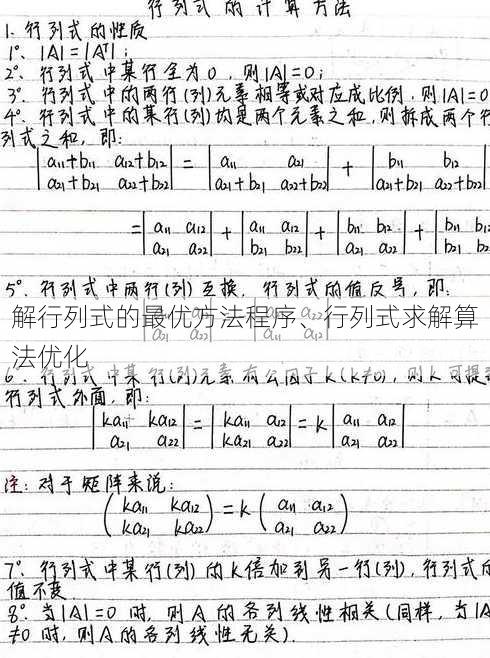 行列式的计算方法
1. 行列式的性质
1°. |A|=|Aᵀ|;
2°. 行列式中某行全为0, 则|A|=0;
3°. 行列式中的两行(列)元素相等或对应成比例, 则|A|=0
4°. 行列式中的某行(列)均是两个元素之和, 则拆成两个行
列式之和, 即:
|a₁₁+b₁₁ a₁₂+b₁₂| = |a₁₁ a₂₁| + |b₁₁ b₁₂|
|a₂₁+b₂₁ a₂₂+b₂₂| |a₂₁+b₂₁ a₂₂+b₂₂| |a₂₁+b₂₁ a₂₂+b₂₂|
= |a₁₁ a₁₂| + |a₁₁ a₁₂| + |b₁₁ b₁₂| + |b₁₁ b₁₂
|a₂₁ a₂₂| |b₂₁ b₂₂| |a₂₁ a₂₂| |b₂₁ b₂₂
5°. 行列式中两行(列)互换, 行列式的值反号, 即:
解行列式的最优方法程序、行列式求解算
法优化
6°. 行列式中某行(列)元素有公因子k(k≠0), 则k可提到
行列式外面, 即:
|ka₁₁ ka₁₂| = |ka₁₁ a₁₂| = k |a₁₁ a₁₂|
|a₂₁ a₂₂| |ka₂₁ a₂₂| |a₂₁ a₂₂|
注: 对于矩阵来说:
(ka₁₁ ka₁₂) = k (a₁₁ a₁₂)
(ka₂₁ ka₂₂) (a₂₁ a₂₂)
7°. 行列式中某行(列)的k倍加到另一行(列), 行列式的
值不变.
8°. 当|A|=0 时, 则A的各列线性相关(同样, 当|A
≠0 时, 则A的各列线性无关).